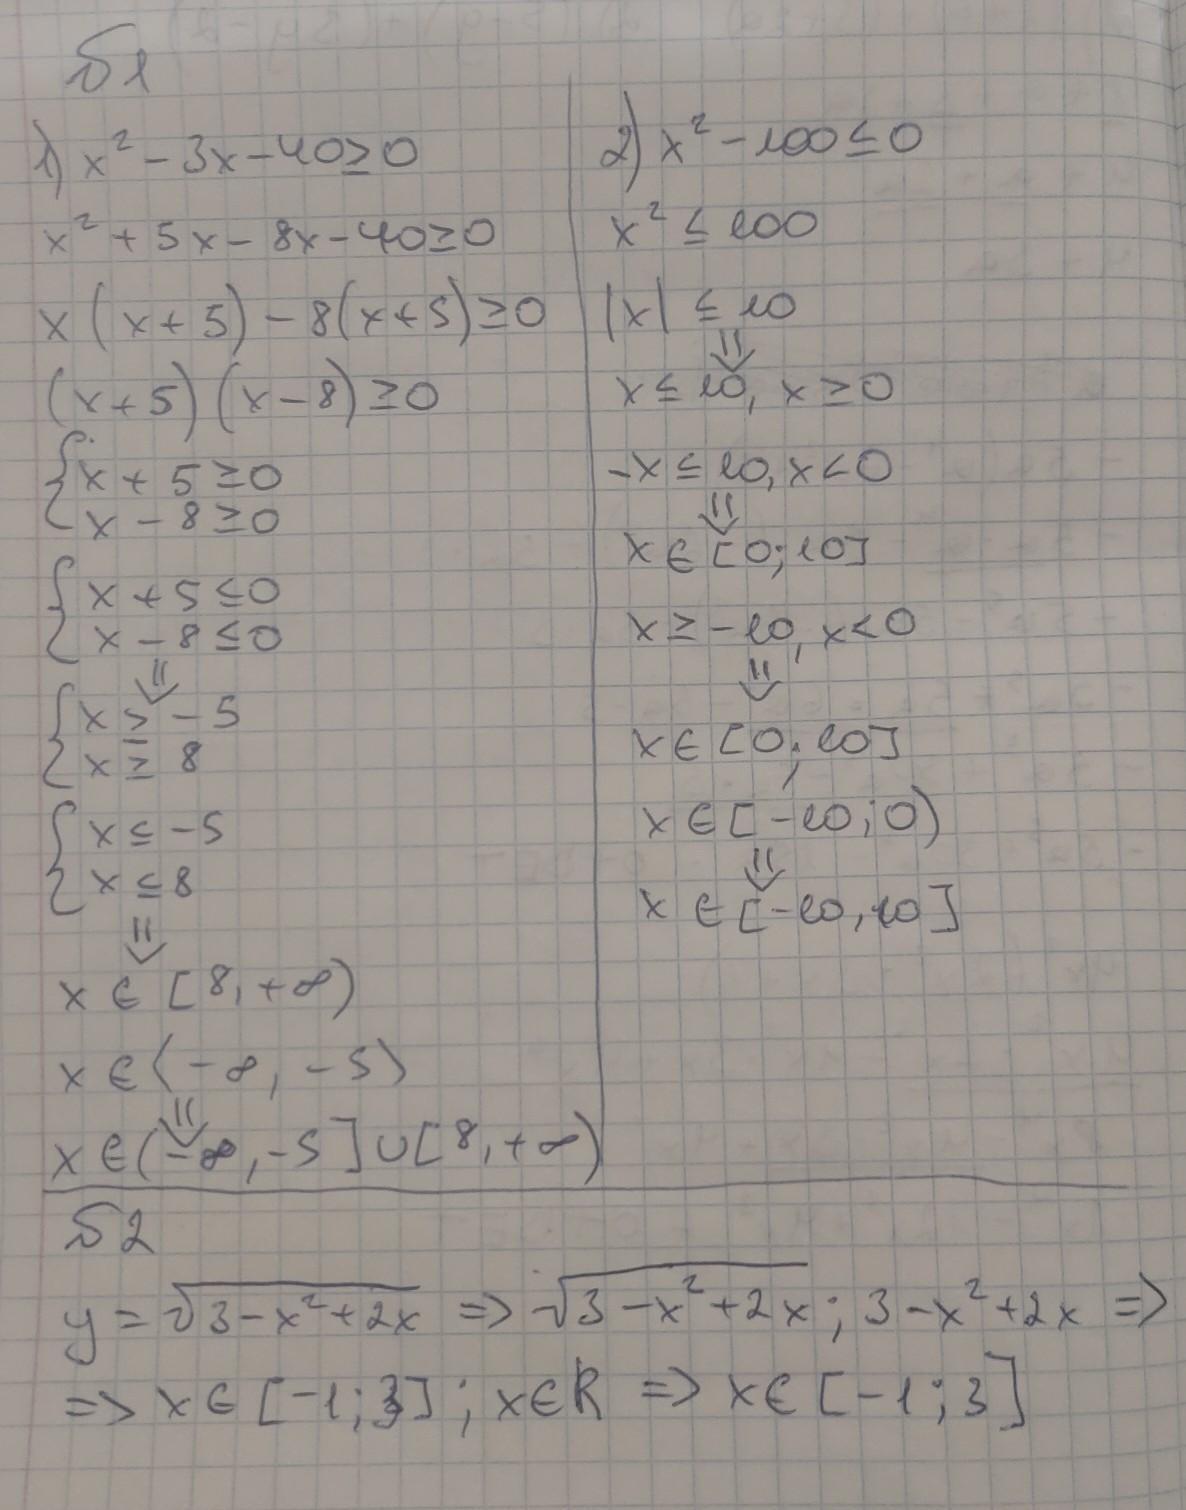 Б1
1) x² - 3x - 40 ≥ 0
x² + 5x - 8x - 40 ≥ 0
x(x + 5) - 8(x + 5) ≥ 0
(x + 5)(x - 8) ≥ 0
{ x + 5 ≥ 0
x - 8 ≥ 0
{ x + 5 ≤ 0
x - 8 ≤ 0
⇓
{ x ≥ -5
x ≥ 8
{ x ≤ -5
x ≤ 8
⇓
x ∈ [8, +∞)
x ∈ (-∞, -5)
⇓
x ∈ (-∞, -5] ∪ [8, +∞)
2) x² - 100 ≤ 0
x² ≤ 100
|x| ≤ 10
⇓
x ≤ 10, x ≥ 0
-x ≤ 10, x < 0
⇓
x ∈ [0; 10]
x ≥ -10, x < 0
⇓
x ∈ [0; 10]
x ∈ [-10; 0)
⇓
x ∈ [-10, 10]
Б2
y = √(3 - x² + 2x) => √(3 - x² + 2x); 3 - x² + 2x =>
=> x ∈ [-1; 3]; x ∈ R => x ∈ [-1; 3]